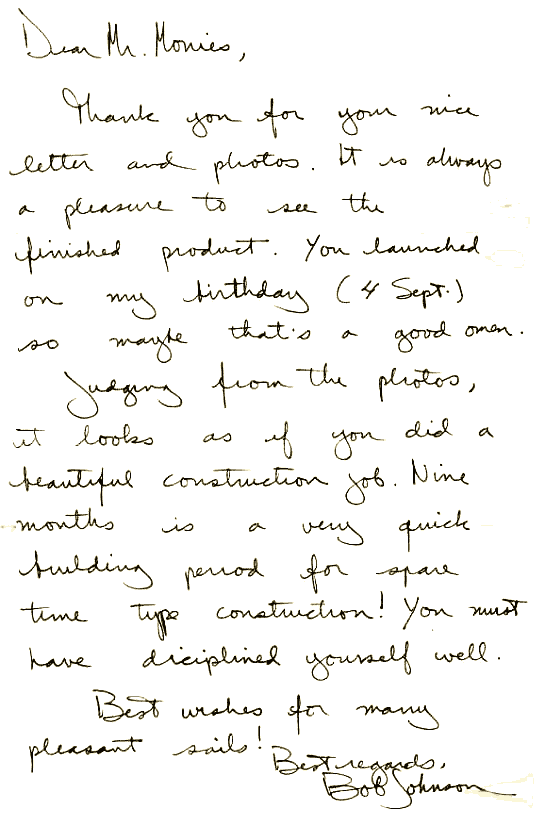 Dear Mr. Monies,
Thank you for your nice
letter and photos. It is always
a pleasure to see the
finished product. You launched
on my birthday (4 Sept.)
so maybe that's a good omen.
Judging from the photos,
it looks as if you did a
beautiful construction job. Nine
months is a very quick
building period for spare
time type construction! You must
have diciplined yourself well.
Best wishes for many
pleasant sails!
Best regards,
Bob Johnson